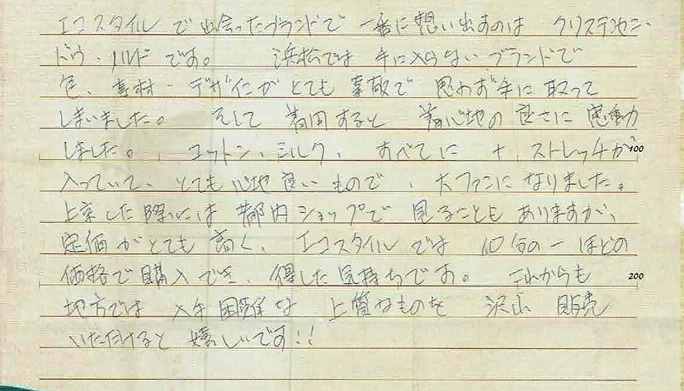 エコスタイルで出会ったブランドで一番に想い出すのは クリステンセン・
ドゥ・ノルド です。 浜松では手に入らないブランドで
色、素材・デザインがとても素敵で思わず手に取って
しまいました。 そして着用すると 着心地の良さに感動
しました。 コットン、シルク、すべてに + ストレッチが 100
入っていて、とても心地良いもので、大ファンになりました。
上京した際には都内ショップで見ることもありますが、
定価がとても高く、エコスタイルでは 10分の一ほどの
価格で購入でき、得した気持ちです。 これからも 200
地方では 入手困難な 上質なものを 沢山 販売
いただけると嬉しいです!!